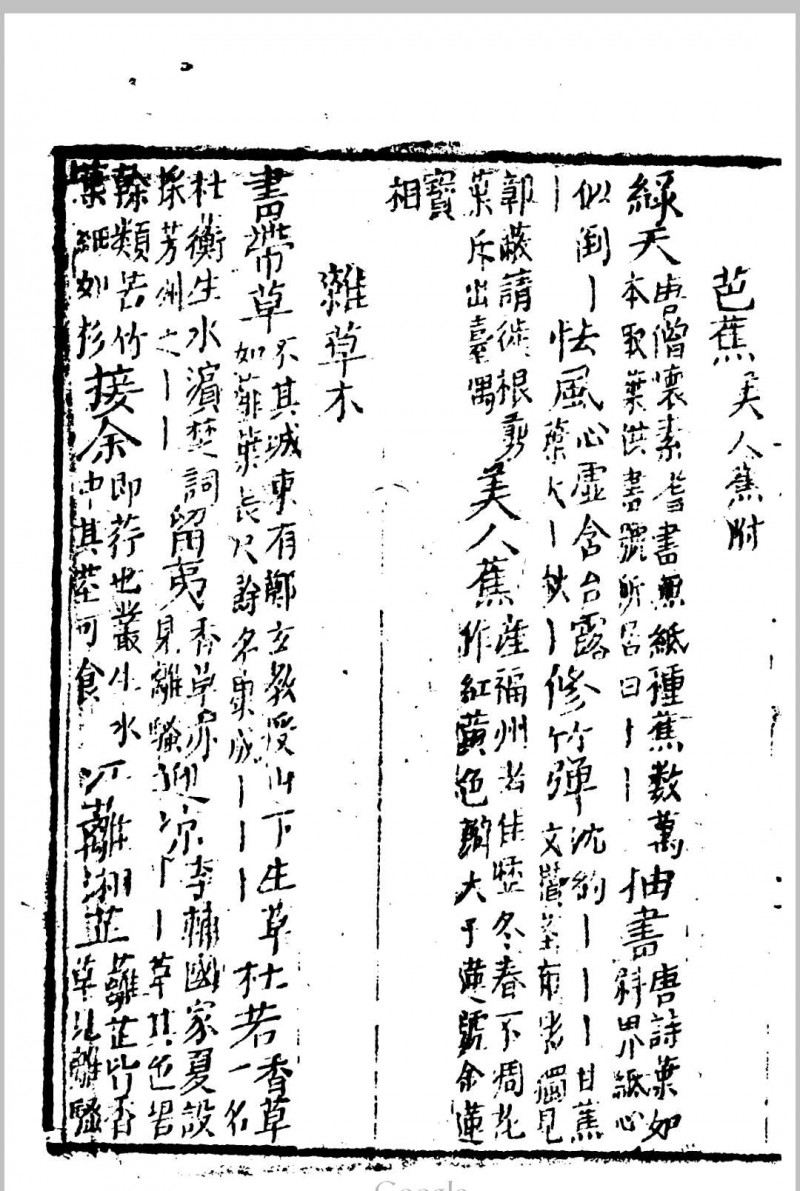 芭蕉美人蕉附
綠天唐僧懷素嗜書無紙種蕉數萬抽書唐詩葉如
本取葉供書號所居曰丨丨斜界紙心
似倒丨怯風心虛含台露修竹彈沈約丨丨丨甘蕉
丨葉大丨扶丨文
獨見
郭蔽請徙根剪美人蕉產福州者佳經冬春不凋花
葉斥出臺隅作紅黃色瓣大于蓮號金蓮
寶
相
雜草木
書帶草不其城東有鄭玄教授山下生草杜若香草
如薤葉長尺餘名康成丨丨丨一名
杜衡生水濱楚詞留夷香草亦迎涼李輔國家夏設
採芳洲之丨丨見離騷丨丨草其色碧
幹類苦竹接余即荇也叢生水江蘺湘芷蘺芷皆香
葉細如杉中其莖可食草見離騷
Google